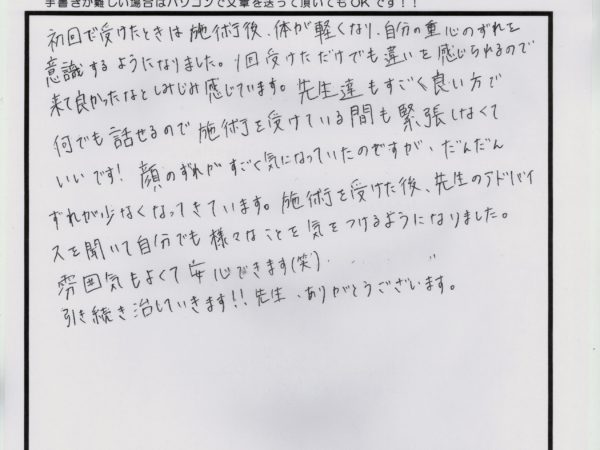 手書きが難しい場合はパソコンで文章を送って頂いてもOKです！！
初回で受けたときは施術後、体が軽くなり、自分の重心のずれを
意識するようになりました。1回受けただけでも違いを感じられるので
来て良かったなとしみじみ感じています。先生達もすごく良い方で
何でも話せるので施術を受けている間も緊張しなくて
いいです！顔のずれがすごく気になっていたのですが、だんだん
ずれが少なくなってきています。施術を受けた後、先生のアドバイ
スを聞いて自分でも様々なことを気をつけるようになりました。
雰囲気もよくて安心できます(笑)
引き続き治していきます!!先生、ありがとうございます。